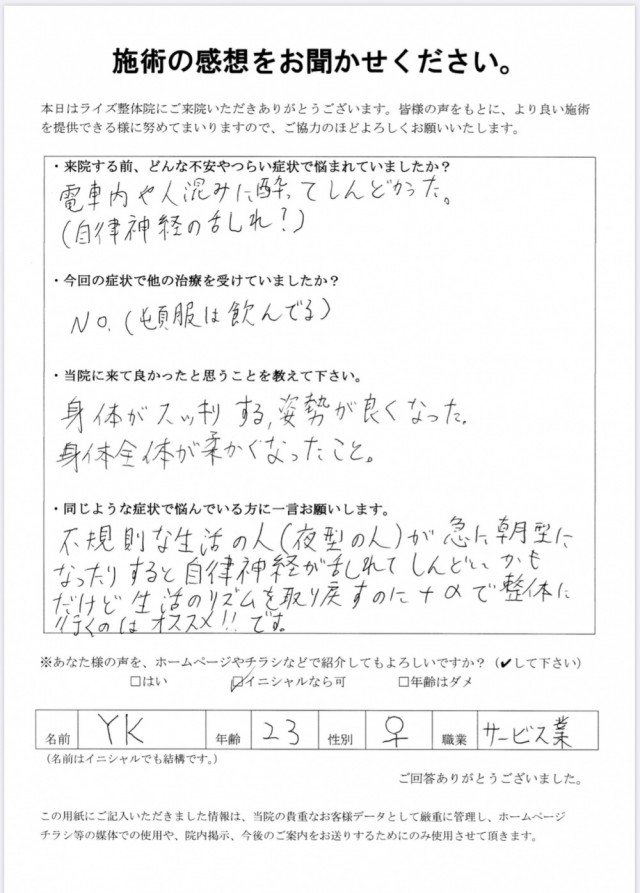 施術の感想をお聞かせください。
本日はライズ整体院にご来院いただきありがとうございます。皆様の声をもとに、より良い施術
を提供できる様に努めてまいりますので、ご協力のほどよろしくお願いいたします。
・来院する前、どんな不安やつらい症状で悩まれていましたか?
電車内や人混みに酔ってしんどかった。
(自律神経の乱れ?)
・今回の症状で他の治療を受けていましたか?
NO.(頓服は飲んでる)
・当院に来て良かったと思うことを教えて下さい。
身体がスッキリする,姿勢が良くなった.
身体全体が柔かくなったこと。
・同じような症状で悩んでいる方に一言お願いします。
不規則な生活の人(夜型の人)が急に朝型に
なったりすると自律神経が乱れてしんどいかも
だけど生活のリズムを取り戻すのに+αで整体に
行くのはオススメ!!です。
※あなた様の声を、ホームページやチラシなどで紹介してもよろしいですか?(✔して下さい)
□はい ☑イニシャルなら可 □年齢はダメ
名前 YK 年齢 23 性別 ♀ 職業 サービス業
(名前はイニシャルでも結構です。)
ご回答ありがとうございました。
この用紙にご記入いただきました情報は、当院の貴重なお客様データとして厳重に管理し、ホームページ
チラシ等の媒体での使用や、院内掲示、今後のご案内をお送りするためにのみ使用させて頂きます。